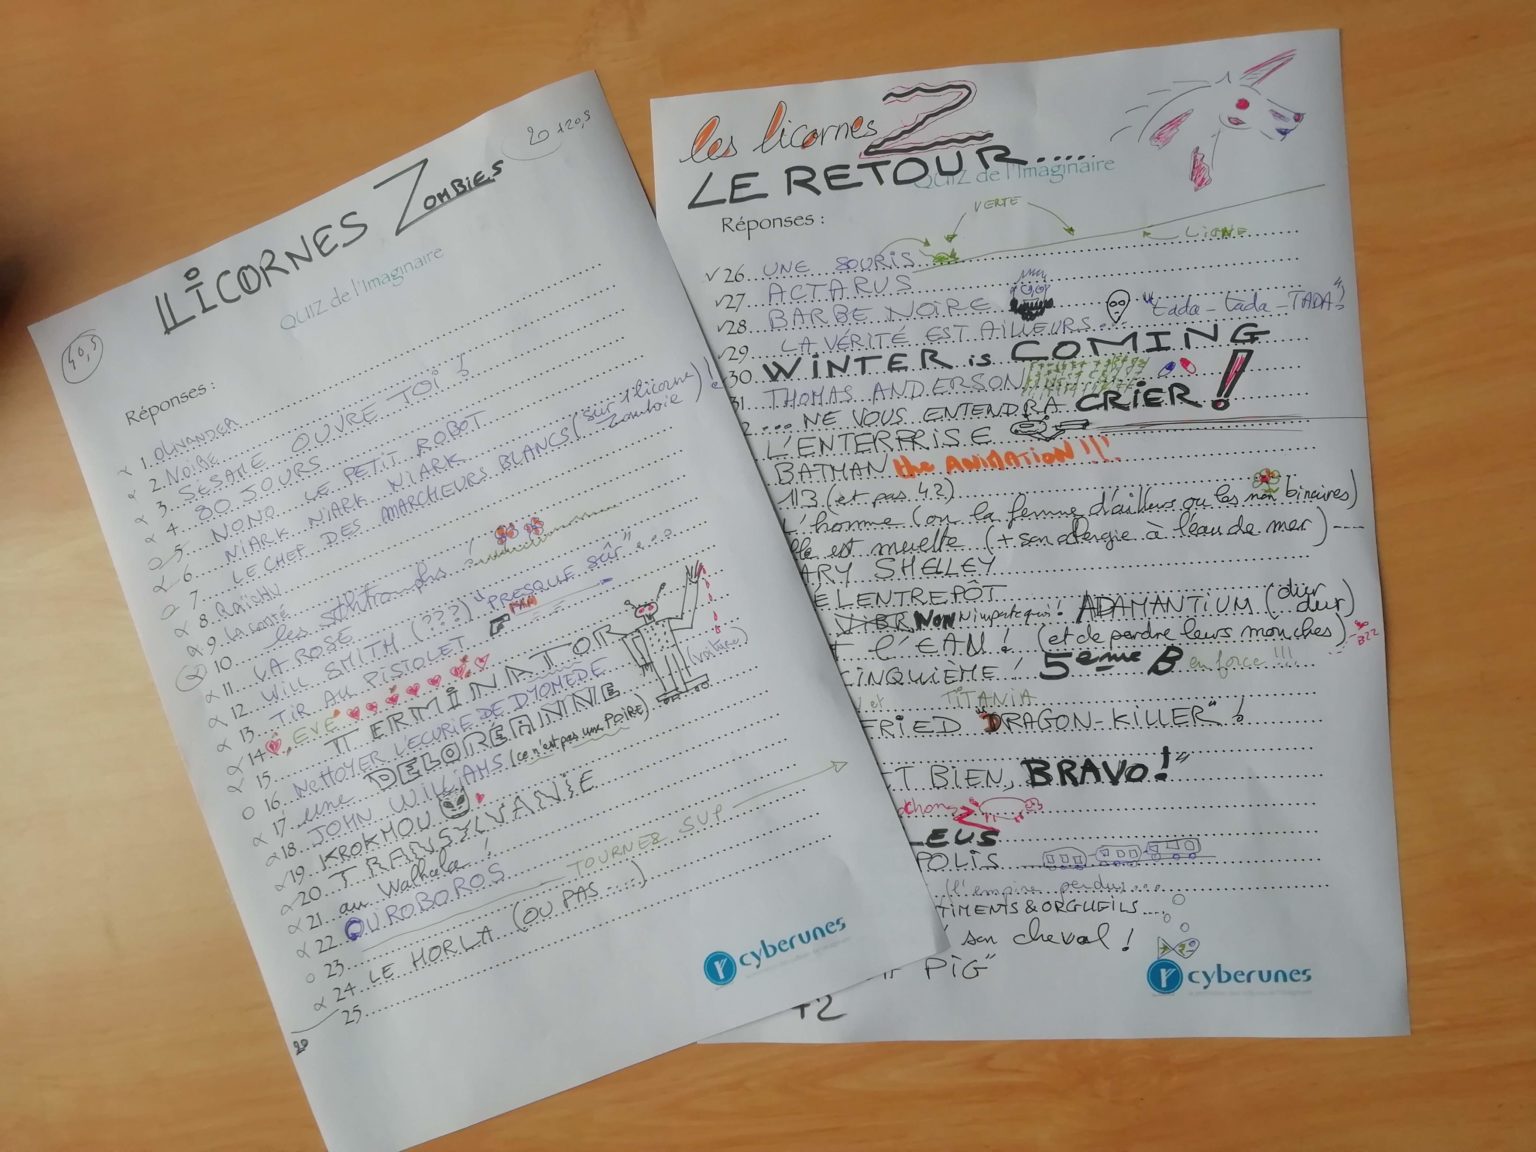 20 +20,5
LICORNES ZOMBIES
QUIZ de l'Imaginaire
40,5
Réponses :
1. OLIVANDER
2. NOIRE
3. SESAME OUVRE TOI !
4. 80 JOURS
5. NONO LE PETIT ROBOT
6. NIARK NIARK NIARK
7. LE CHEF DES MARCHEURS BLANCS (sur 1 licorne Zombie)
8.
9. La santé
10. les
11. LA ROSE
12. WILL SMITH (???) "PRESQUE SÛR"....
13. TIR AU PISTOLET
14. EVE
15. TERMINATOR
16. NETTOYER L'ECURIE DE DIOMEDE
17. une DELORÉANNE (voiture)
18. JOHN WILLIAMS (ce n'est pas une POIRE)
19. KROKMOU
20. TRANSYLVANIE
21. au Walhala !
22. OUROBOROS
23.
24. LE HORLA (OU PAS ....)
25.
TOURNEZ SVP
20
cyberunes
les licornes Z
LE RETOUR....
QUIZ de l'Imaginaire
Réponses :
VERTE
LIGNE
26 UNE SOURIS
27 ACTARUS
28 BARBE NOIRE "tada - tada - TADA"
29 LA VÉRITÉ EST AILLEURS...
30 WINTER is COMING
31 THOMAS ANDERSON
2 ... NE VOUS ENTENDRA CRIER !
L'ENTERPRISE
BATMAN the ANIMATION !!!
113 (et pas 42)
L'homme (ou la femme d'ailleurs ou les non binaires)
lle est muette (+ son allergie à l'eau de mer) ----
ARY SHELLEY
ELENTREPÔT
VIBR NON N'importe quoi ! ADAMANTIUM (dur dur)
T l'EAU ! (et de perdre leurs mouches)
CINQUIÈME ! 5eme B en force !!!
et TITANIA
FRIED DRAGON-KILLER" !
T BIEN, BRAVO !"
chon
LEUS
POLIS
(l'empire perdu...
TIMENTS & ORGUEILS....
son cheval !
PIG"
+2
cyberunes